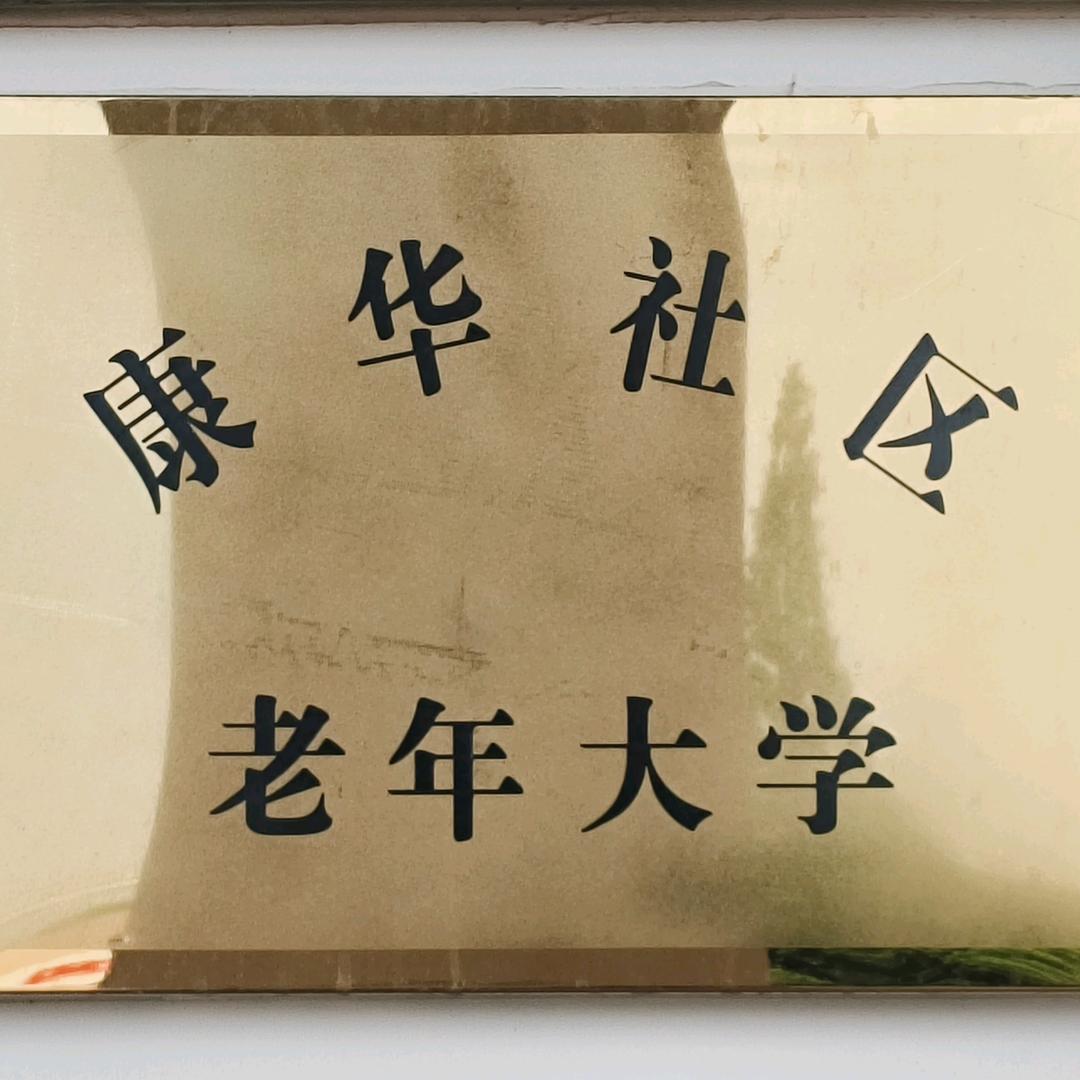 康华社区
老年大学